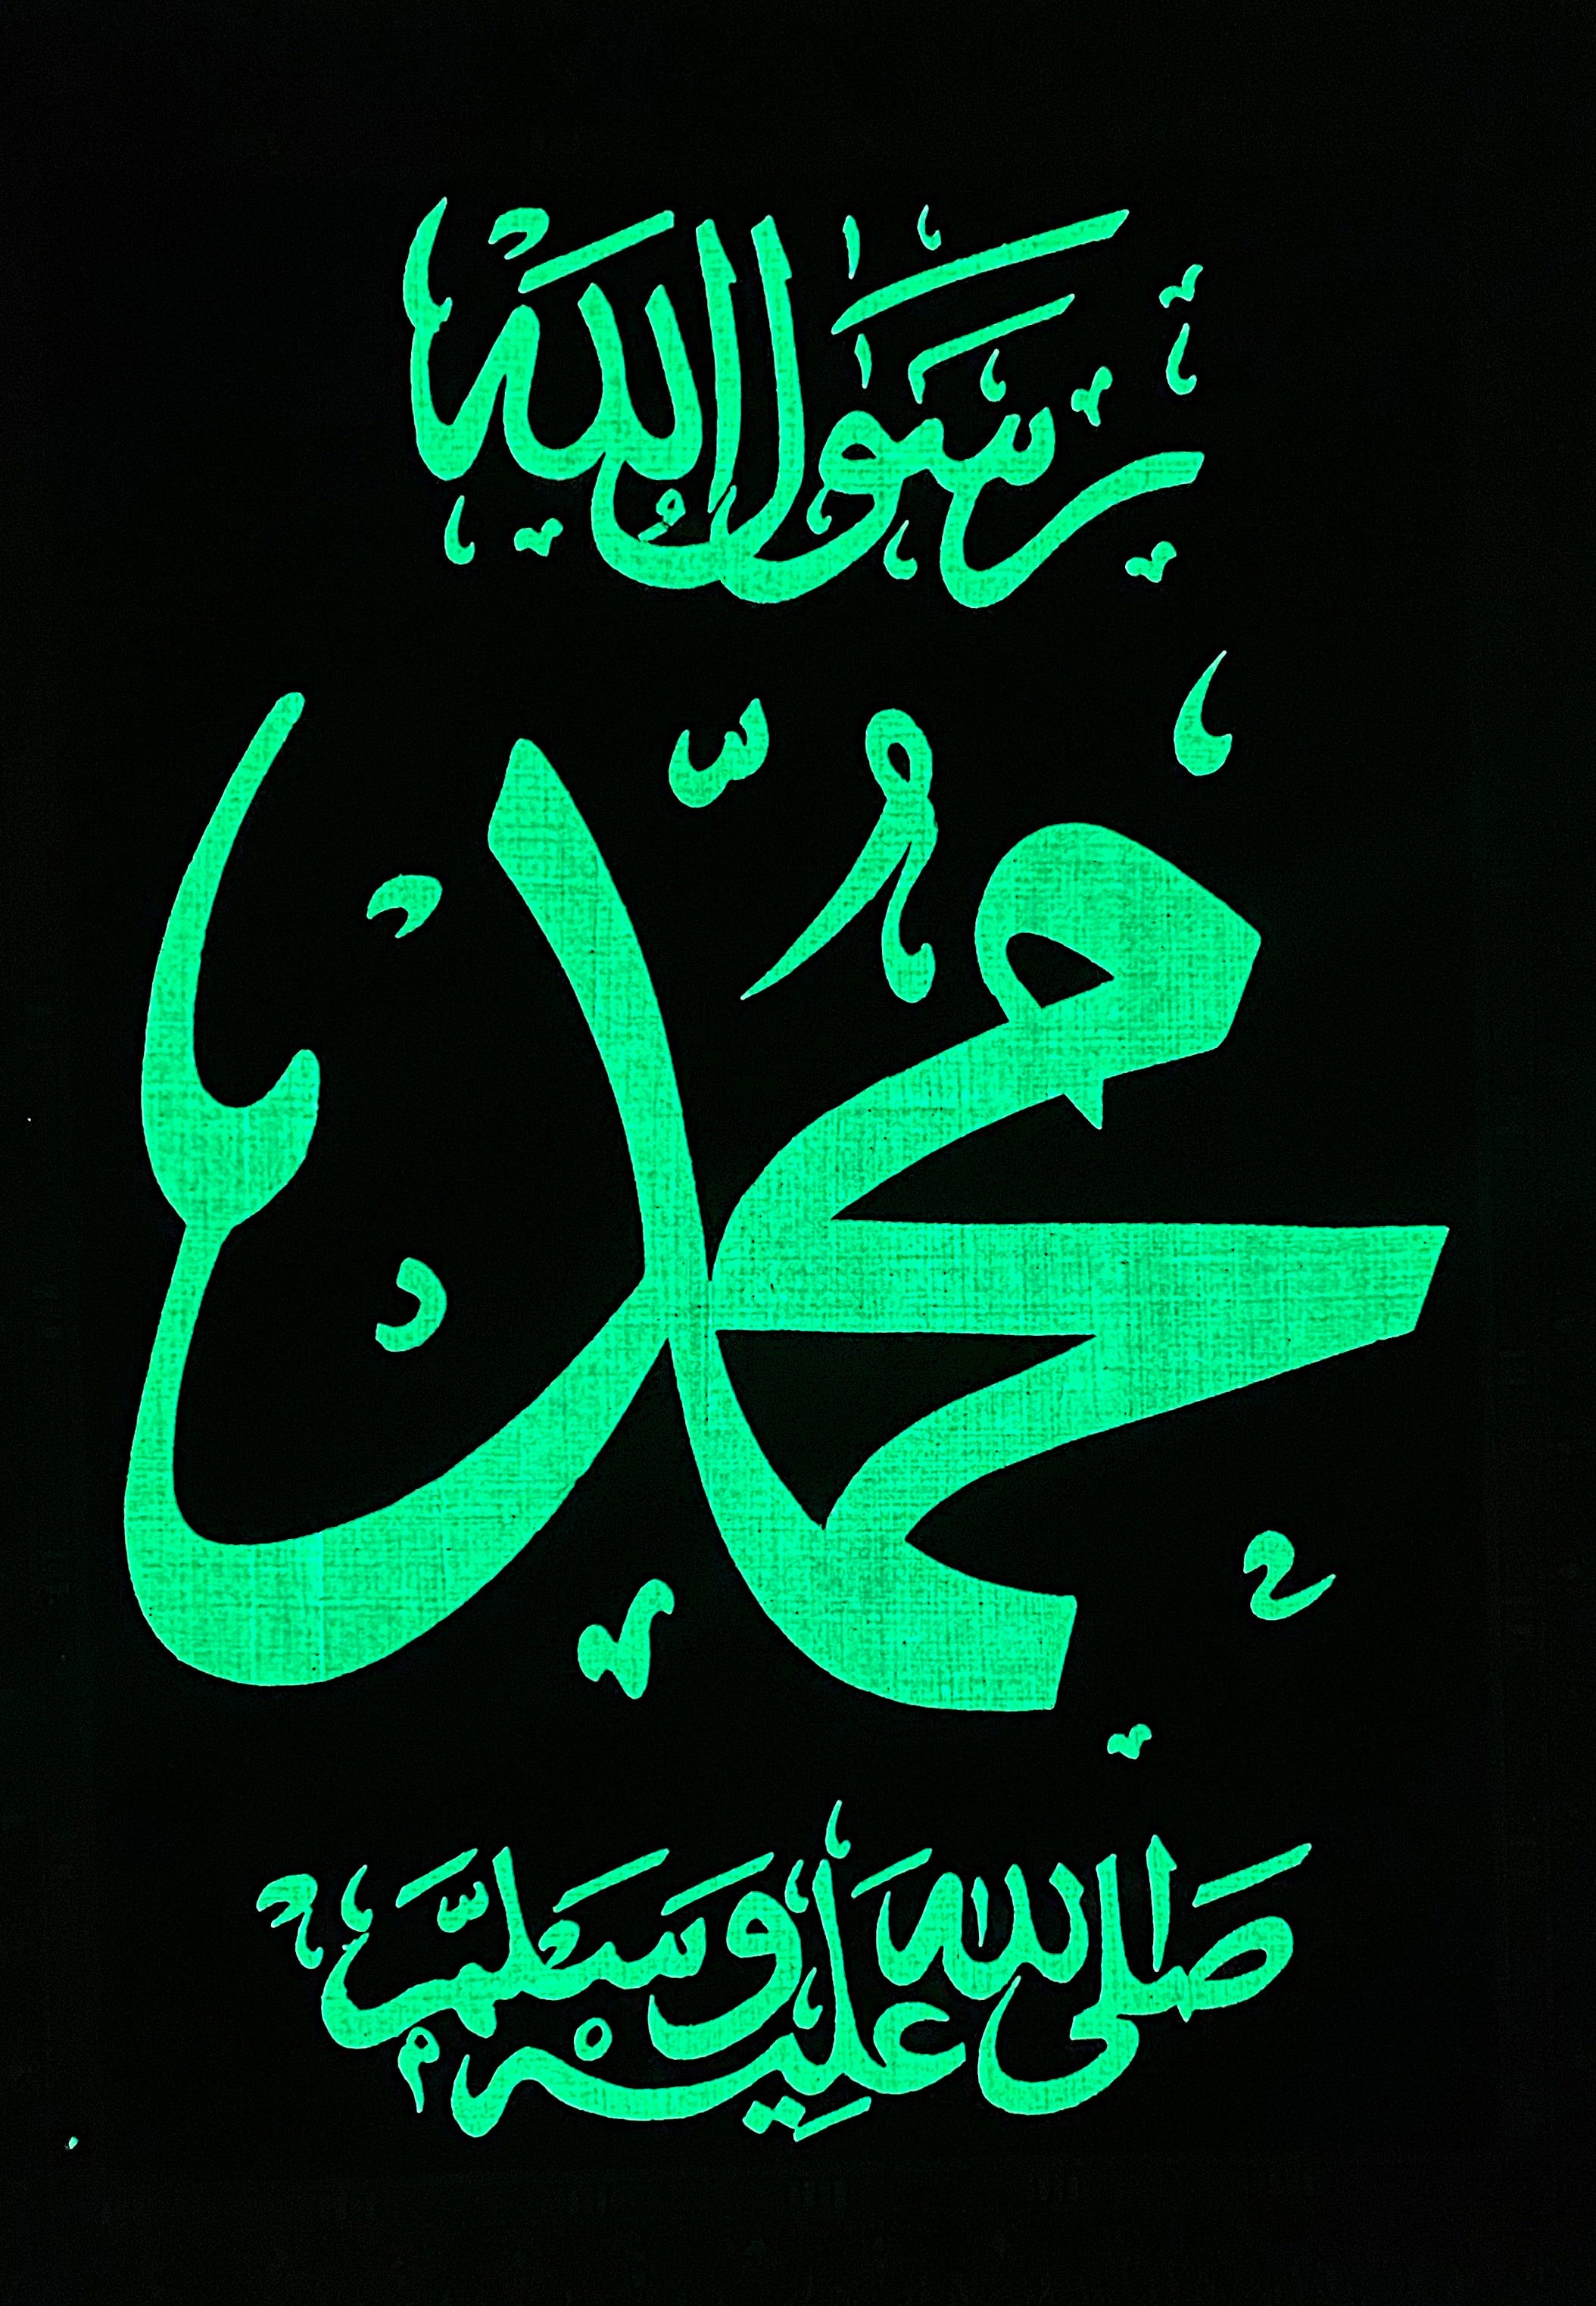 رَسُولُ اللهِ
مُحَمَّدٌ
صَلَّى اللهُ عَلَيْهِ وَسَلَّمَ